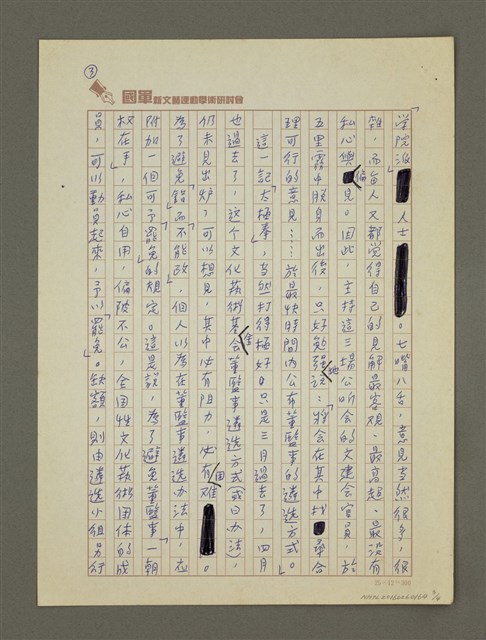 ③
國軍新文藝運動學術研討會
「学院派」人士。七嘴八舌，意見当然很多，很
雜，而每人又都觉得自己的見解最客观、最高超、最没有
私心偏見。因此，主持這三場公听会的文建会官員，於
五里霧中脱身而出後，只好勉強地說：將会在其中找尋合
理可行的意見……於最快時間內公布董監事的遴选方式。」
這一記「太極拳」，当然打得極好。只是三月過去了，四月
也過去了，这个文化藝術基金会董監事遴选方式或曰办法，
仍未見出炉，可以想見，其中必有阻力，必有困难。
為了避免「錯」而不能改，個人以為在董監事遴选办法中，应
附加一個可予「罷免」的規定。這是說，為了避免董監事一朝
权在手，私心自用，偏陂不公，全国性文化藝術团体的成
員，可以動員起來，予以「罷免」。缺額，則由遴选小组另行
25×12=300